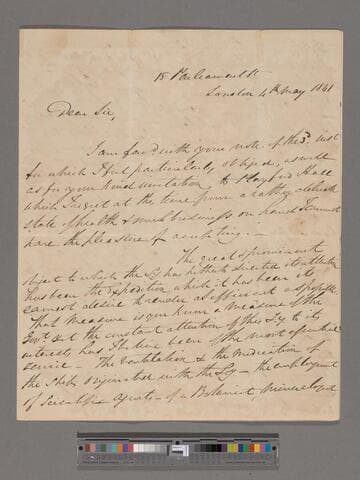 15 Parliament St
London 4th May 1841
Dear Sir,
I am favd with your note of the 3d inst
for which I feel particularly obliged, as well
as for your kind invitation to Playford Hall
which I regret at the time from a rather delicate
state of health & much business on hand I cannot
have the pleasure of accepting. -
The great & prominent
object to which the Sy has hitherto directed its attention
has been the Expedition which it has been its
earnest desire to render as efficient as possible
That measure is you know a measure of the
Govt but the constant attention of the Sy to its
interests has I believe been of the most essential
service - The Ventilation & the medication of
the Ships originated with the Sy - the employment
of Scientific Agents - of a Botanist, Mineralogist